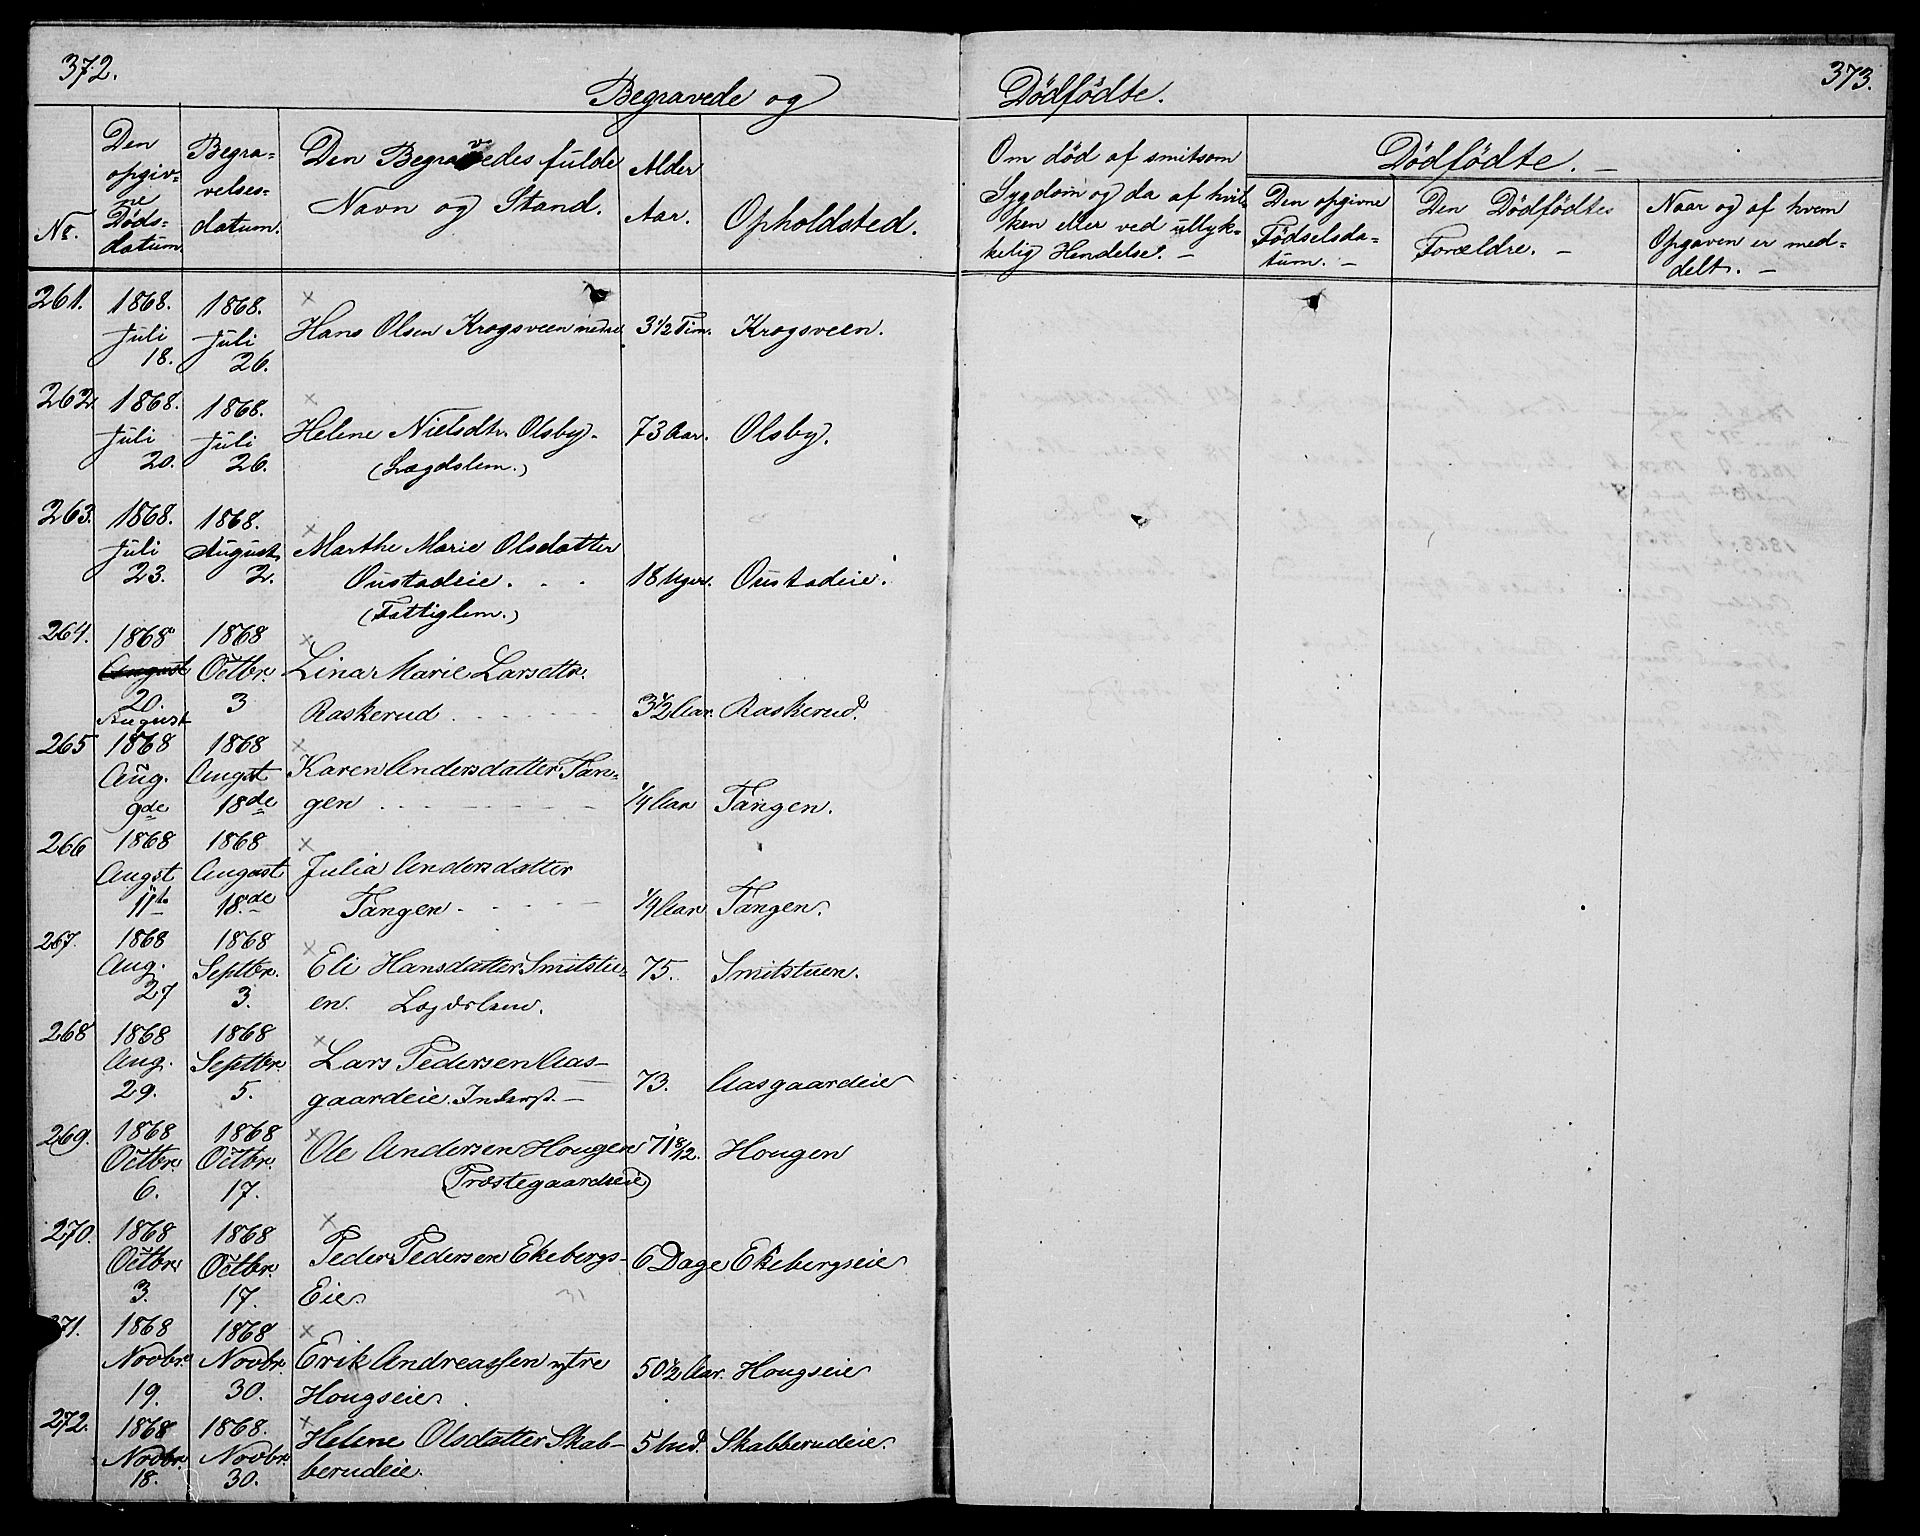 372.
Begravede og
No.
Den opgivne Dødsdatum
Begravelsesdatum.
Den Begravedes fulde Navn og Stand.
Alder Aar.
Opholdsted.
261. 1868. Juli 18. 1868. Juli 26. Hans Olsen Krogsveen nedre 3 1/2 Tim. Krogsveen.
262. 1868. Juli 20. 1868. Juli 26. Helene Nielsdtr. Olsby. (Lægdslem.) 73 Aar. Olsby.
263. 1868. Juli 23. 1868. August 2. Marthe Marie Olsdatter Oustadeie. (Fattiglem.) 18 Uger. Oustadeie.
264. 1868 August 20. August 1868 Octbr. 3 Lina Marie Larsdtr. Raskerud 3 1/2 Aar. Raskerud.
265 1868 Aug. 9de 1868 Augst 18de Karen Andersdatter Tangen 1/4 Aar Tangen.
266 1868 Augst 11te 1868 August 18.de Julia Andersdatter Tangen 1/4 Aar Tangen.
267. 1868 Aug. 27 1868 Septbr. 3. Eli Hansdatter Smitstuen. Lægdslem. 75. Smitstuen.
268 1868 Aug. 29. 1868 Septbr. 5. Lars Pedersen Aasgaardeie. Inderst. 73. Aasgaardeie
269. 1868 Octbr. 6. 1868 Octbr. 17. Ole Andersen Hougen (Præstegaardseie) 71 8/12. Hougen
270. 1868 Octbr 3. 1868 Octbr. 17. Peder Pedersen Ekebergs-Eie. 6 Dage Ekebergseie
271. 1868 Novbr. 19. 1868 Novbr. 30. Erik Andreassen ytre Hougseie. 50 1/2 Aar. Hougseie
272. 1868 Novbr. 18. 1868. Novbr. 30. Helene Olsdatter Skabberudeie. 5 Skabberudeie.
373.
Dødfødte.
Om død af smitsom
Sygdom og da af hvil
ken eller ved ullyk=
kelig Hendelse. —
Dødfødte. —
Den opgivne
Fødselsda=
tum. —
Den Dødfødtes
Forældre. —
Naar og af hvem
Opgaven er med=
delt. —